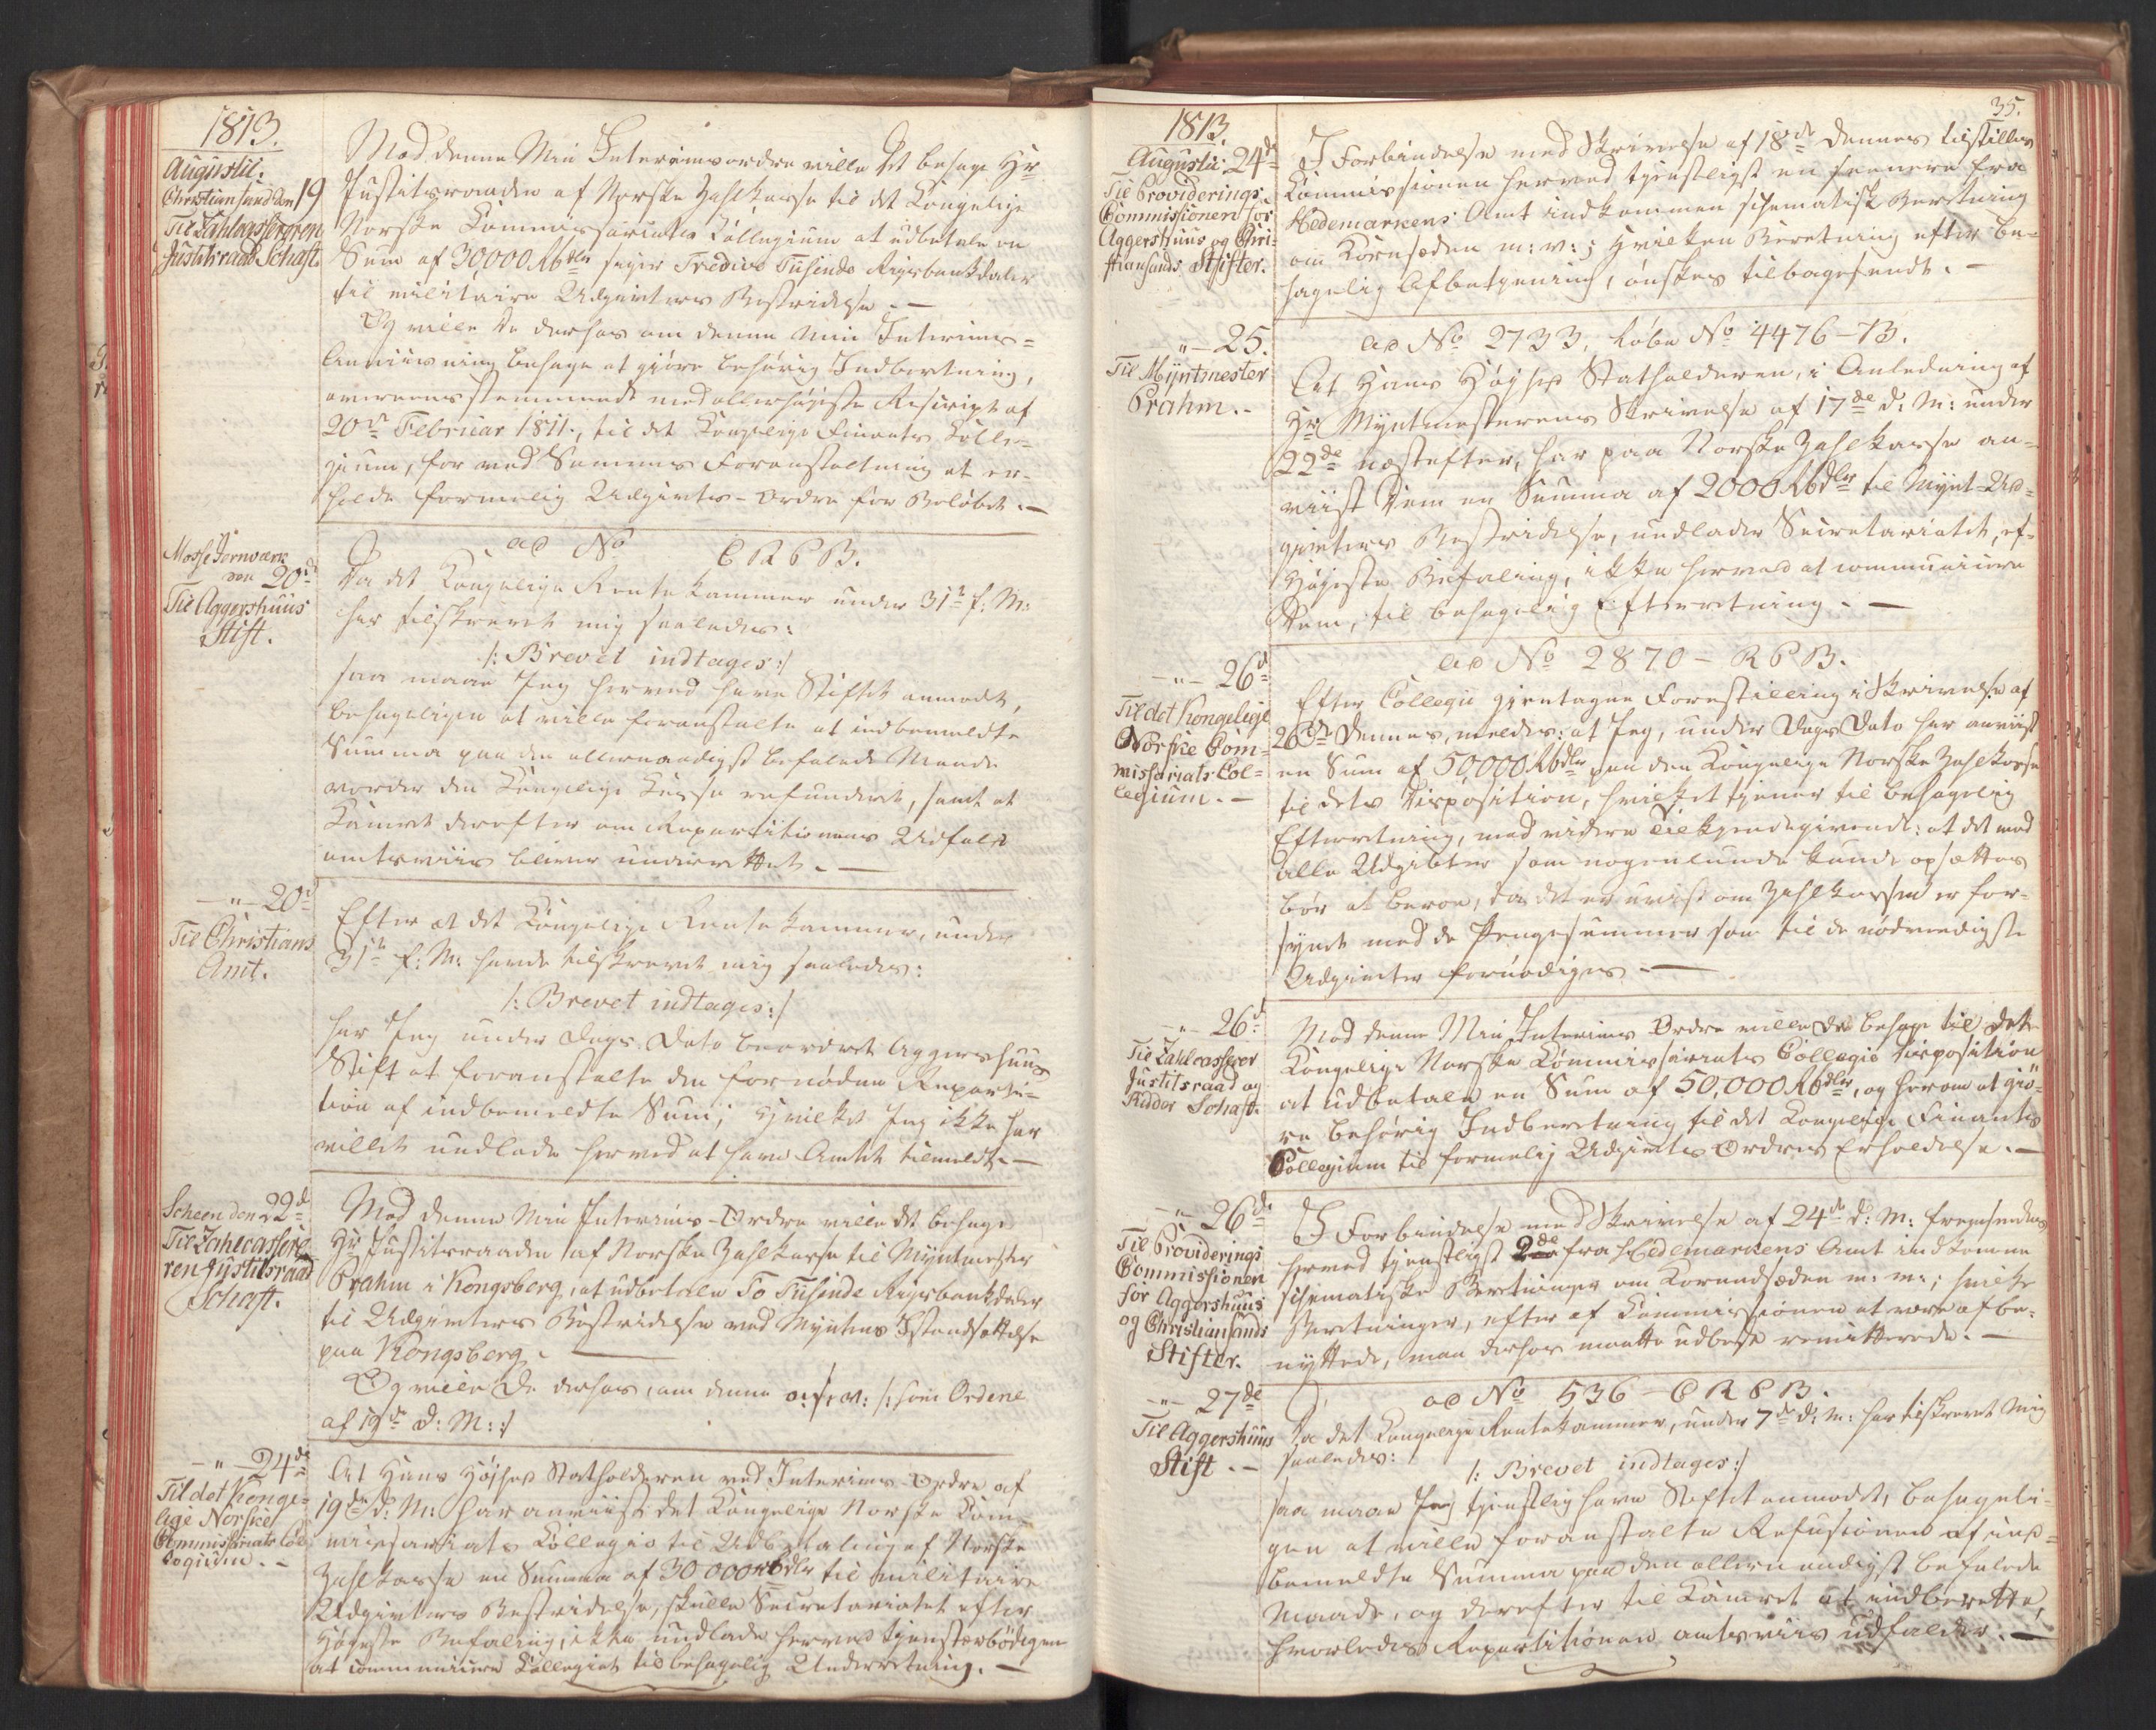 1813.
Augustii.
Christiansund den 19
Til Zahlcassereren
Justitsraad Schaft.
Mod denne Min Interimsordre ville Det behage Hr
Justitsraaden af Norske Zahlkasse til det Kongelige
Norske Commissariats Collegium at udbetale en
Sum af 30,000 Rbdlr siger Tredive Tusinde Rigsbankdaler
til militaire Udgivters Bestridelse. —
Og ville De derhos om denne Min Interims-
Anviisning behage at gjøre behørig Indberetning,
overeensstemmende med allerhøieste Rescript af
20de Februar 1811, til det Kongelige Finants Colle-
gium, for ved Sammes Foranstaltning at er-
holde formelig Udgivts-Ordre for Beløbet. —
Mosse Jernværk
den 20d
Til Aggershuus
Stift.
ad No C R P B.
Da det Kongelige Rentekammer under 31te f: M:
har tilskrevet mig saaledes:
/: Brevet indtages:/
saa maae Jeg herved have Stiftet anmodet,
behageligen at ville foranstalte at indbemeldte
Summa paa den allernaadigst befalede Maade
vorder den Kongelige Kasse refunderet, samt at
Kamret derefter om Repartitionens Udfald
amtsviis bliver underrettet. —
—"— 20d
Til Christians
Amt.
Efter at det Kongelige Rentekammer, under
31te f: M: havde tilskrevet mig saaledes:
/: Brevet indtages:/
har Jeg under Dags Dato beordret Aggershuus
Stift at foranstalte den fornødne Reparti-
tion af indbemeldte Sum; hvilket Jeg ikke har
villet undlade herved at have Amtet tilmeldt. —
Scheen den 22d
Til Zahlcassere-
ren Justitsraad
Schaft.
Mod denne Min Interims-Ordre ville det behage
Hr Justitsraaden af Norske Zahlkasse til Myntmester
Prahm i Kongsberg, at udbetale To Tusinde Rigsbankdaler
til Udgivters Bestridelse ved Myntens Istandsættelse
paa Kongsberg. —
Og ville De derhos, om denne o: s: v: /: som Ordene
af 19de D: M: :/
—"— 24de
Til det Konge-
lige Norske
Commissariats Col-
legium. —
At Hans Højhed Statholderen ved Interims-Ordre af
19de d: M: har anviist det Kongelige Norske Com-
missariats Collegio til Udbetaling af Norske
Zahlkasse en Summa af 30000 Rbdlr til militaire
Udgivters Bestridelse, skulle Secretariatet efter
Højeste Befaling, ikke undlade herved tjenstærbødigen
at communicere Collegiet til behagelig Underretning. —
35.
1813.
Augusti: 24d
Til Providerings-
Commissionen for
Aggershuus og Chri-
stiansands Stifter.
I Forbindelse med Skrivelse af 18de dennes tilstilles
Commissionen herved tjenstligst en senere fra
Hedemarkens Amt indkommen schematisk Beretning
om Kornsæden m: v:; hvilken Beretning efter be-
hagelig Afbenyttening, ønskes tilbagesendt. —
"— 25.
Til Myntmester
Prahm. —
ad No 2733, Løbe No 4476-73.
At Hans Højhed Statholderen, i Anledning af
Hr Myntmesterens Skrivelse af 17de d: M: under
22de næstefter, har paa Norske Zahlkasse an-
viist Dem en Summa af 2000 Rbdlr til Mynt-Ud-
givters Bestridelse, undlader Secretariatet, ef-
Højeste Befaling, ikke herved at communicere
Dem, til behagelig Efterretning. —
—"— 26d
Til det Kongelige
Norske Com-
missariats Col-
legium. —
ad No 2870 — R P B.
Efter Collegii gjentagne Forestilling i Skrivelse af
26de Dennes, meldes: at Jeg, under Dags Dato har anviist
en Sum af 50,000 Rbdlr paa den Kongelige Norske Zahlkasse
til dets Disposition, hvilket tjener til behagelig
Efterretning, med videre Tilkjendegivende: at det med
alle Udgivter som nogenlunde kunde opsættes
bør at beroe, da det er uvist om Zahlkassen er for-
synet med de Pengesummer som til de nødvendigste
Udgivter fornødiges. —
—"— 26d
Til Zahlcasserer
Justitsraad og
Ridder Schaft.
Mod denne Min Interims Ordre ville De behage til det
Kongelige Norske Commissariats Collegio Disposition
at udbetale en Sum af 50,000 Rbdlr, og herom at giö-
re behörig Indberetning til det Kongelige Finants
Collegium til formelig Udgivts Ordres Erholdelse. —
—"— 26d
Til Providerings
Commissionen
for Aggershuus
og Christiansands
Stifter.
I Forbindelse med Skrivelse af 24de d: M: fremsendes
herved tjenstligst 2de fra Hedemarkens Amt indkomne
schematiske Beretninger om Kornsæden m: m:; hvilke
Beretninger, efter af Commissionen at være afbe-
nyttede, man derhos maatte udbede remitterede. —
—"— 27de
Til Aggershuus
Stift. —
ad No 536 — C R P B.
Da det Kongelige Rentekammer, under 7de d: M: har tilskrevet Mig
saaledes:
/: Brevet indtages:/
saa maae Jeg tjenstlig have Stiftet anmodet, behageli-
gen at ville foranstalte Refusionen af ind-
bemeldte Summa paa den allernaadigst befalede
Maade, og derefter til Kamret at indberette,
hvorledes Repartitionen amtsviis udfalder. —